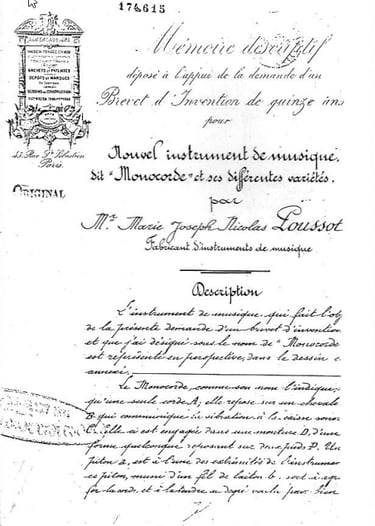 174615
ORIGINAL
Paris.
Mémoire descriptif
déposé à l'appui de la demande d'un
Brevet d'Invention de quinze ans
pour
Nouvel instrument de musique,
dit "Monocorde" et ses différentes variétés.
par
Mr. Marie Joseph Nicolas Poussot
Fabricant d'instruments de musique
Description
L'instrument de musique qui fait l'obj
de la présente demande d'un brevet d'invention
et que j'ai désigné sous le nom de "Monocorde
est représenté en perspective, dans le dessin
annexé.
Le Monocorde, comme son nom l'indique,
qu'une seule corde A; elle repose sur un chevalet
B qui communique la vibration à la caisse sonor
C. Elle ci est engagée dans une monture D, d'une
forme quelconque reposant sur des pieds P. Un
piton a, est à l'une des extrémités de l'instrumen
ce piton, muni d'un fil de laiton b, sert à
la corde et à la tendre au degré voulu par